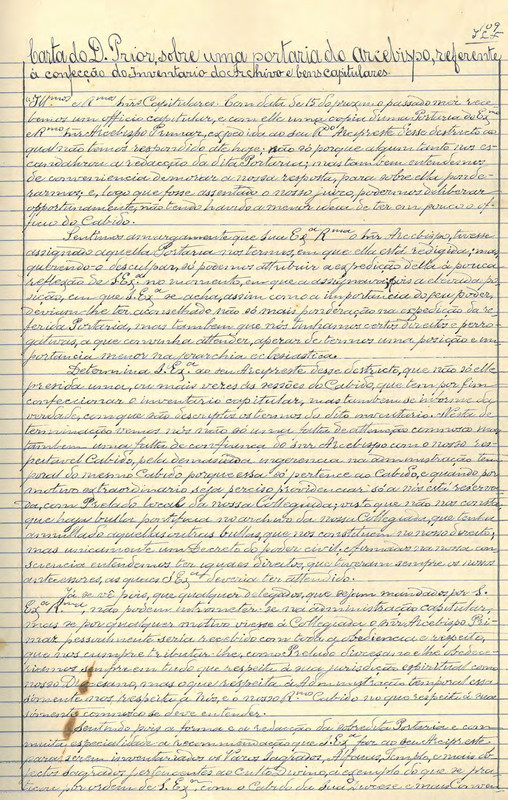 109
Carta do D. Prior, sobre uma portaria do Arcebispo, referente
á confecção do Inventario do Archivo e bens capitulares.
Illmos e Rmos Snrs Capitulares. Com data de 15 do proximo passado mez rece
bemos um officio capitular, e com elle uma copia d'uma Portaria do Exmo
e Rmo Snr Arcebispo Primaz, expedida ao seu Rdo Arcypreste d'esse destricto ao
qual não temos respondido até hoje; não só porque algum tanto nos es-
candalizou a redacção da dita Portaria; mas tambem entendemos,
de conveniencia demorar a nossa resposta, para sobre ella ponde-
rarmos; e, logo que fosse assentado o nosso juizo, podermos deliberar
opportunamente, não tendo havido a menor ideia de ter em pouco o of-
ficio do Cabido.
Sentimos amargamente que Sua Exa Rma o Snr Arcebispo, tivesse
assignado aquella Portaria nos termos, em que ella está redigida; mas,
querendo-o desculpar, só podemos attribuir a expedição d'ella á pouca
reflexão de S. Exa no momento, em que a assignava, pois a elevada po-
sição, em que S. Exa se acha, assim como a importancia do seu poder,
deviam-lhe ter aconselhado não só mais ponderação na expedição da re-
ferida Portaria, mas tambem que nós tinhamos certos direitos e perro-
gativas, a que convinha attender, apezar de termos uma posição e im-
portancia menor na jerarchia ecclesiastica.
Determina S. Exa ao seu Arcypreste desse destricto, que não só elle
presida uma, ou mais vezes ás sessões do Cabido, que tem por fim
confeccionar o inventario capitular, mas tambem se informe da
verdade, com que são descriptos os termos do dito inventario: N'esta de-
terminação vemos nós não só uma falta de attenção comnosco mas
tambem uma falta de confiança do snr Arcebispo com o nosso res-
peitavel Cabido, pela demasiada ingerencia na administração tem-
poral do mesmo Cabido porque essa só pertence ao Cabido, e quando por
motivo extraordinario seja preciso providenciar: só a nós está reserva-
da, com Prelado local da nossa Collegiada; visto que não nos consta
que haja bulla pontificia no archivo da nossa Collegiada, que tenha
annullado aquellas outras bullas, que nos constituem no nosso direito;
mas unicamente um Decreto do poder civil; e firmados na nossa con-
sciencia entendemos ter iguaes direitos, que tiveram sempre os nossos
antecessores, as quaes S Exa deveria ter attendido.
Já se vê pois, que quaesquer delegados, que sejam mandados, por S.
Exa Rma, não podem intrometer-se na administração capitular,
mas se por qualquer motivo viesse á Collegiada o snr Arcebispo Pri-
maz pessoalmente seria recebido com toda a obediencia e respeito,
que nos cumpre tributar-lhe, como Prelado Diocesano e lhe obedece-
riamos sempre em tudo que respeita á sua jurisdição espiritual com
nosso Diocesano, mas o que respeita á Administração temporal essa
sómente nos respeita a Nós, e o nosso Rmo Cabido no que respeita á sua
sómente comnosco se deve entender.
Sentindo pois a forma e a redacção da sobredita Portaria e com
muita especialidade a recommendação que S. Exa faz ao seu Arcypreste
para serem inventariados os Vasos Sagrados, Alfaias, Templo, e mais ob-
jectos sagrados pertencentes ao Culto Divino, a exemplo do que se pra-
ticou por ordem de S. Exa, com o Cabido da sua Sé, esse e mais Conven